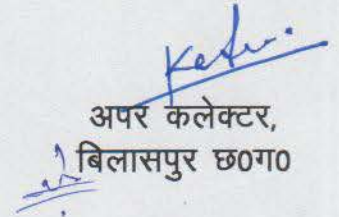 अपर कलेक्टर,
बिलासपुर छ0ग0